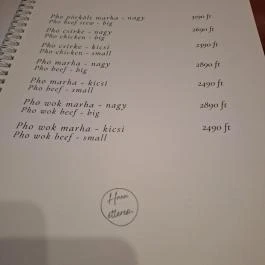 Pho pörkölt marha - nagy 3190 ft
Pho beef stew - big
Pho csirke - nagy 2690 ft
Pho chicken - big
Pho csirke - kicsi 2390 ft
Pho chicken - small
Pho marha - nagy 2890 ft
Pho beef - big
Pho marha - kicsi 2490 ft
Pho beef - small
Pho wok marha - nagy 2890 ft
Pho wok beef - big
Pho wok marha - kicsi 2490 ft
Pho wok beef - small
Hanoi
étterem